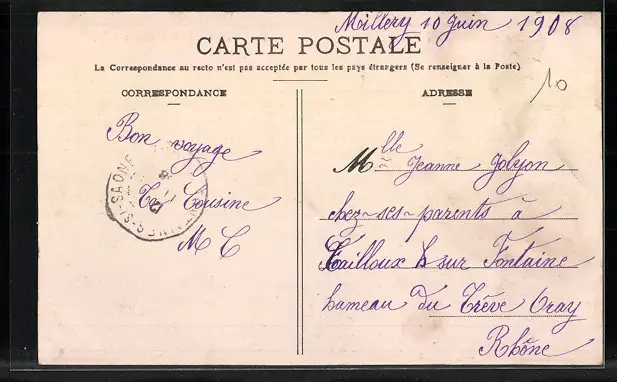 Millery 10 Juin 1908
CARTE POSTALE
La Correspondance au recto n'est pas acceptée par tous les pays étrangers (Se renseigner à la Poste).
10
CORRESPONDANCE
Bon voyage
Ta Cousine
M C
ADRESSE
Mlle Jeanne
chez-ses-parents à
Cailloux sur Fontaine
hameau du Trêve Oray
Rhône